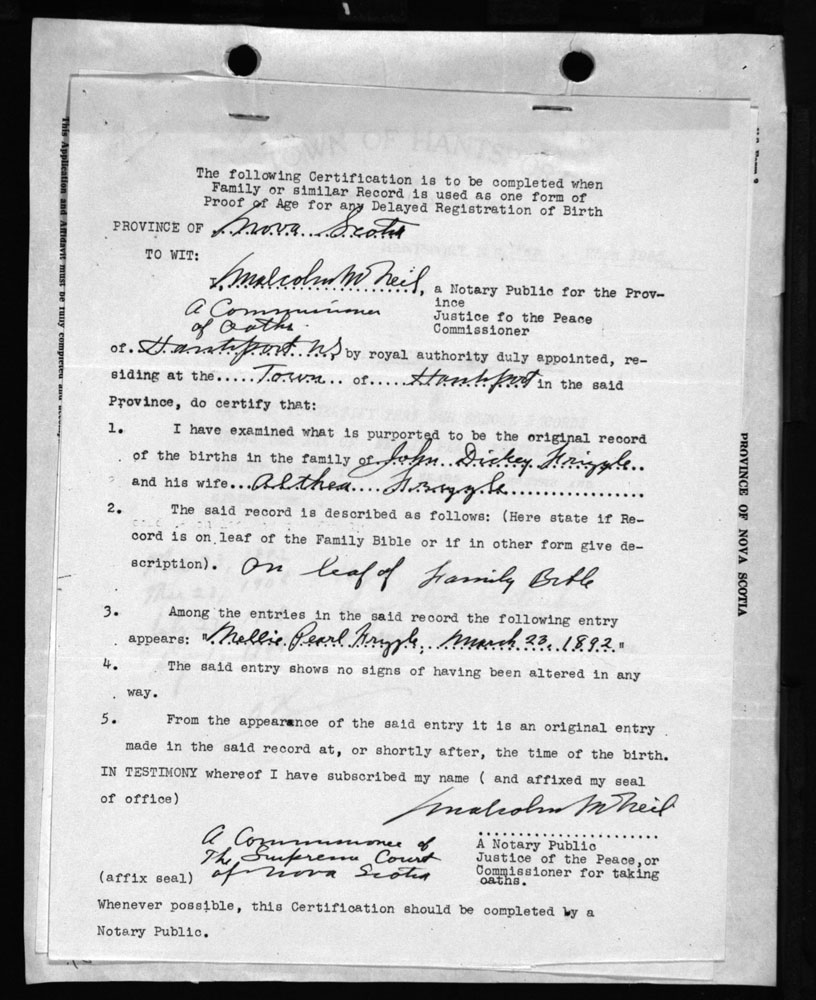 The following Certification is to be completed when
Family or similar Record is used as one form of
Proof of Age for any Delayed Registration of Birth
PROVINCE OF Nova Scotia
TO WIT:
I, Malcolm McNeil, a Notary Public for the Prov-
ince
A Commissioner Justice fo the Peace
of Oaths Commissioner
of Hantsport N.S. by royal authority duly appointed, re-
siding at the.....Town... of.....Hantsport in the said
Province, do certify that:
1. I have examined what is purported to be the original record
of the births in the family of John Dickey Frizzle..
and his wife...Althea....Frizzle.................
2. The said record is described as follows: (Here state if Re-
cord is on leaf of the Family Bible or if in other form give de-
scription). On leaf of Family Bible
3. Among the entries in the said record the following entry
appears: "Mellie Pearl Frizzle, March 23, 1892."
4. The said entry shows no signs of having been altered in any
way.
5. From the appearance of the said entry it is an original entry
made in the said record at, or shortly after, the time of the birth.
IN TESTIMONY whereof I have subscribed my name ( and affixed my seal
of office)
Malcolm McNeil
A Commissioner of
The Supreme Court
of Nova Scotia
A Notary Public
Justice of the Peace,or
Commissioner for taking
oaths.
(affix seal)
Whenever possible, this Certification should be completed by a
Notary Public.
This Application and Affidavit must be fully completed and
PROVINCE OF NOVA SCOTIA